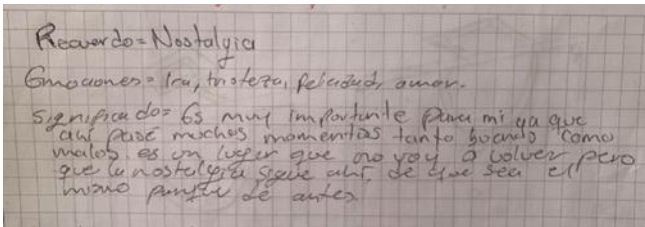 Recuerdo = Nostalgia
Emociones = Ira, tristeza, felicidad, amor.
Significado = Es muy importante para mi ya que
ahí pasé muchos momentos tanto buenos como
malos es un lugar que no voy a volver pero
que la nostalgia sigue ahí, de que sea el
mismo punto de antes.